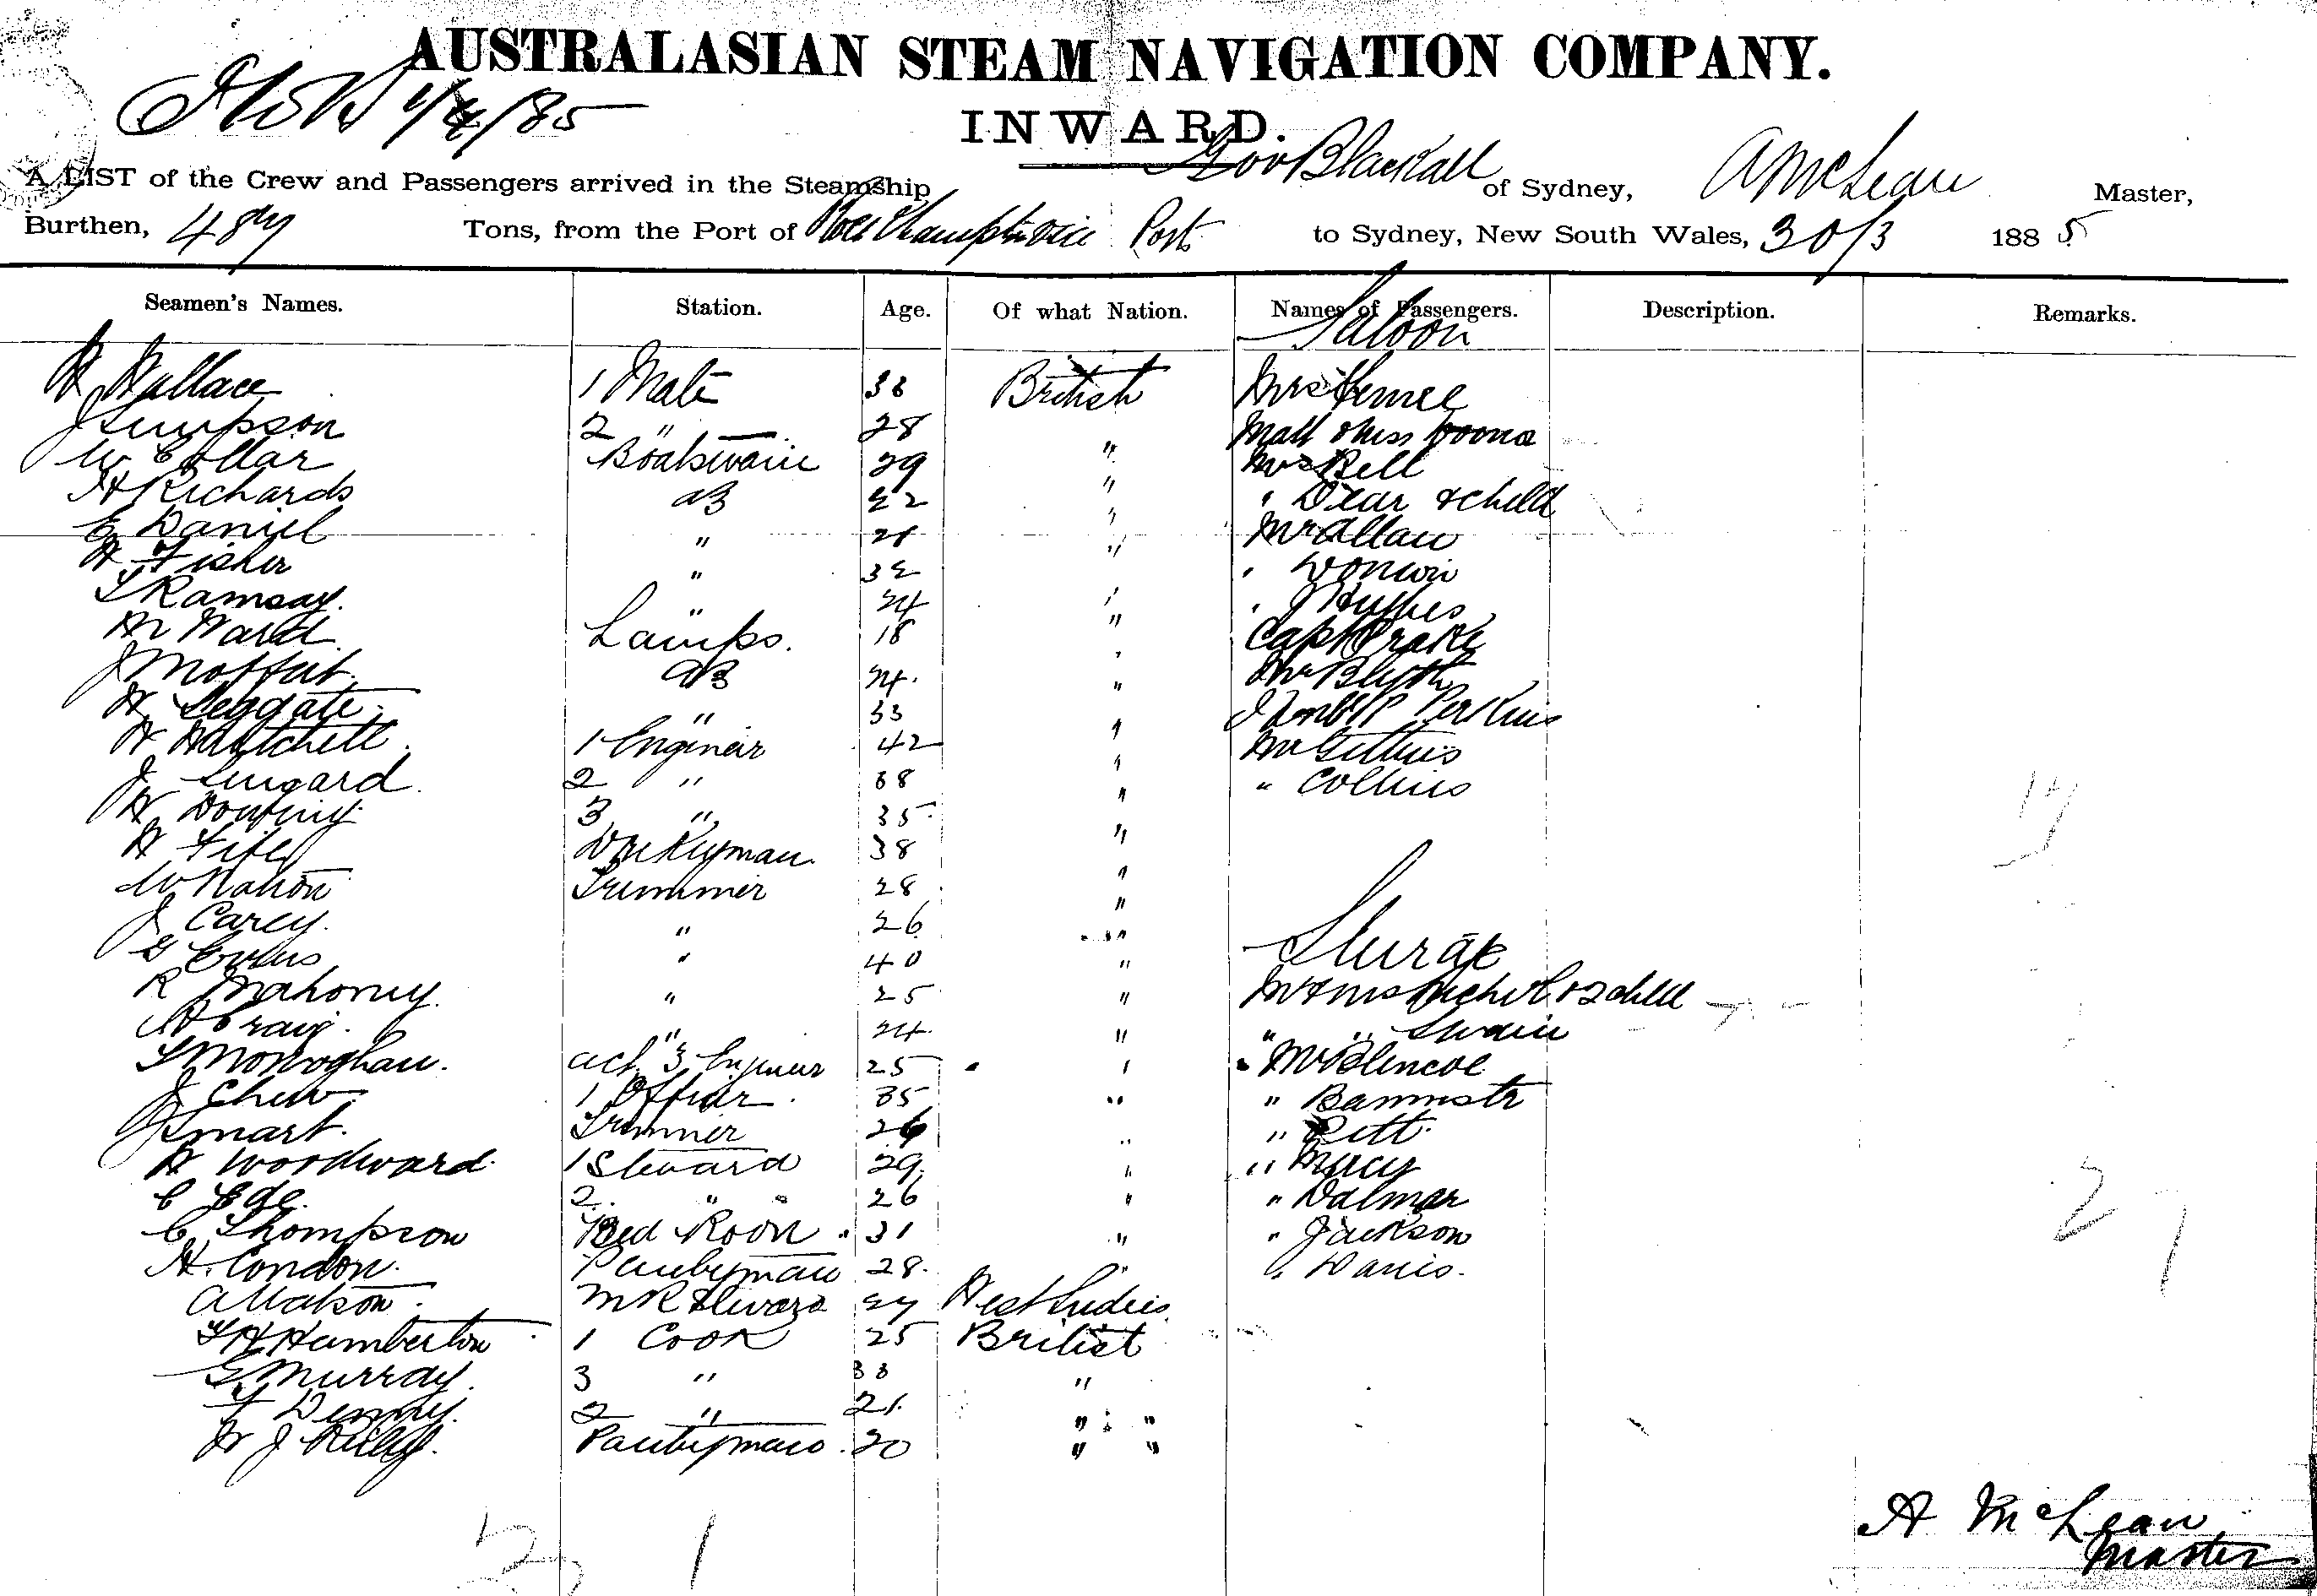 AUSTRALASIAN STEAM NAVIGATION COMPANY.
1/4/85
INWARD.
A LIST of the Crew and Passengers arrived in the Steamship Gov Blackall of Sydney, A McLean Master,
Burthen, 487 Tons, from the Port of Rockhampton via Ports to Sydney, New South Wales, 30/3 1885
Seamen's Names. Station. Age. Of what Nation. Names of Passengers. Description. Remarks.
Saloon
H Wallace 1 Mate 36 British Mrs
J Simpson 2 " 28 Miss
W Collar Boatswain 29 " Mrs Bell
H Richards AB 22 " " Dear & child
E Daniel " 21 " Mr Allan
H Fisher " 32 " "
T Ramsay. " 24 " " J Hughes
M Ward Lamps. 18 " Capt Drake
J Moffat. AB 24. " Mr Blyth
H Leggate. " 33 " Perkins
H Hatchett. 1 Engineer 42 " Mr Gittins
J Lingard. 2 " 38 " " Collins
H Dowling 3 " 35 "
H Fife Donkeyman. 38 "
W Nation Trimmer 28 "
J Carey. " 26 "
Steerage
G Evans " 40 "
R Mahoney. " 25 " Mr & Mrs Nichol & 2 child
H Craig. " 24 " " " Swain
T Monoghan. act 3 Engineer 25 " " Mr Blencoe
J Chew. 1 Officer. 35 " " Bannister
J Smart. Trimmer 26 " " Pitt
H Woodward. 1 Steward 29. " " Macey
C Ede. 2 " " 26 " " Dalmar
C Thompson Bed Room. 31 " " Jackson
H. London. Pantryman 28. " " Davis.
A Watson. M R Steward 27 West Indies
T H Humberton 1 Cook 25 British
G Murray. 3 " 33 "
T Denny. 2 " 21. " "
H J Riley. Pantryman. 20 " "
A McLean
Master